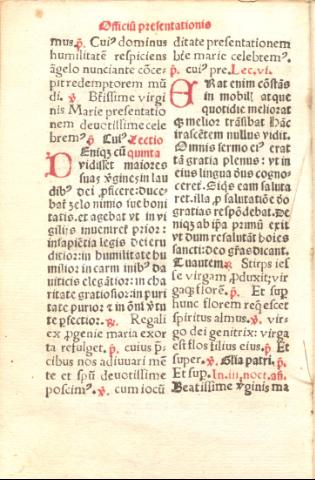 Officiū presentationis
mus. p̄. Cuiꝰ dominus
humilitatē respiciens
āgelo nunciante cōce⸗
pit redemptorem mū
di. ꝟ. Btissime virgi
nis Marie presentatio
nem deuotissime cele
bremꝰ. p̄ Cuiꝰ Lectio
DEniqꝫ cū quinta
vidisset maiores
suas ꝟgines in lau
dibꝰ dei ꝓficere: duce⸗
bat̄ zelo nimio sue boni
tatis. et agebat vt in vi
giliis inueniret̄ prior:
in sapiētia legis dei eru
ditior: in humilitate hu
milior in carminibꝰ da
uiticis elegātior: in cha
ritate gratiosior: in puri
tate purior ⁊ in oī ꝟtu
te ꝑfectior. ℟. Regali
ex ꝓgenie maria exor
ta refulget. p̄. cuius p̄⸗
cibus nos adiuuari mē
te et spū deuotissime
poscimꝰ. ꝟ. cum iocū
ditate presentationem
bte marie celebremꝰ.
p̄. cuiꝰ pre. Lec. vi.
ERat enim cōstās
in mobilꝭ atque
quotidie meliorat
qꝫ melior trāsibat Hāc
irascētem nullus vidit.
Omnis sermo eiꝰ erat
tā gratia plenus: vt in
eius lingua dn̄s cogno⸗
sceret̄. Q̄qꝫ eam saluta
ret. illa ꝓ salutatiōe do
gratias respōdebat. De
niqꝫ ab ip̄a primū exiit
vt dum resalutāt hoīes
sancti: deo gr̄as dicant.
Tu autem ℟ Stirps ies
se virgam ꝓduxit; vir
gaqꝫ florē. p̄. Et suꝑ
hunc florem req̄escet
spiritus almus. ꝟ. vir⸗
go dei genitrix: virga
est flos filius eius. p̄. Et
super. ꝟ. Glia patri. p̄.
Et sup. In. iii. noct. an̄.
Beatissime ꝟginis ma